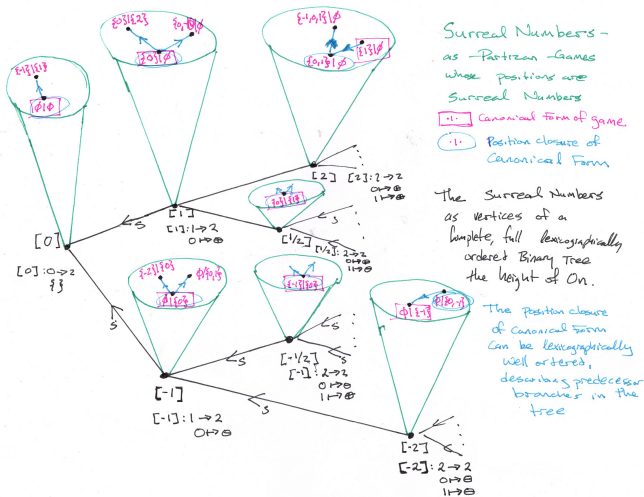 Surreal Numbers -
as Partizan Games
whose positions are
Surreal Numbers
Canonical form of game
Position closure of
Canonical Form
The Surreal Numbers
as vertices of a
complete, full lexicographically
ordered Binary Tree
the height of On.
The position closure
of Canonical Form
can be lexicographically
well ordered,
describing predecessor
branches in the
tree
{-1}|{1}
∅|∅
{0}|{2}
{0}|∅
{-1,0,1}|∅
{1}|∅
{0,1}|∅
[0]
[0]:0→2
{}
[1]
[1]:1→2
0↦⊕
[2]
[2]:2→2
0↦⊕
1↦⊕
{0}|{1}
[1/2]
[1/2]:2→2
0↦⊕
1↦⊖
{-2}|{0}
∅|{0,1}
∅|{0}
[-1]
[-1]:1→2
0↦⊖
{-1}|{0}
[-1/2]
[-1]:2→2
0↦⊖
1↦⊕
∅|{-1}
∅|{0,-1}
[-2]
[-2]:2→2
0↦⊖
1↦⊖
S
S
S
S
S
S